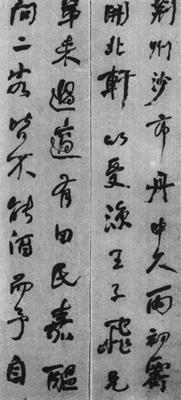 荆州沙市舟中久雨初霽
開北軒以受涼王子飛兄
弟来過適有田氏嘉醖
問二客皆不能酒而予自